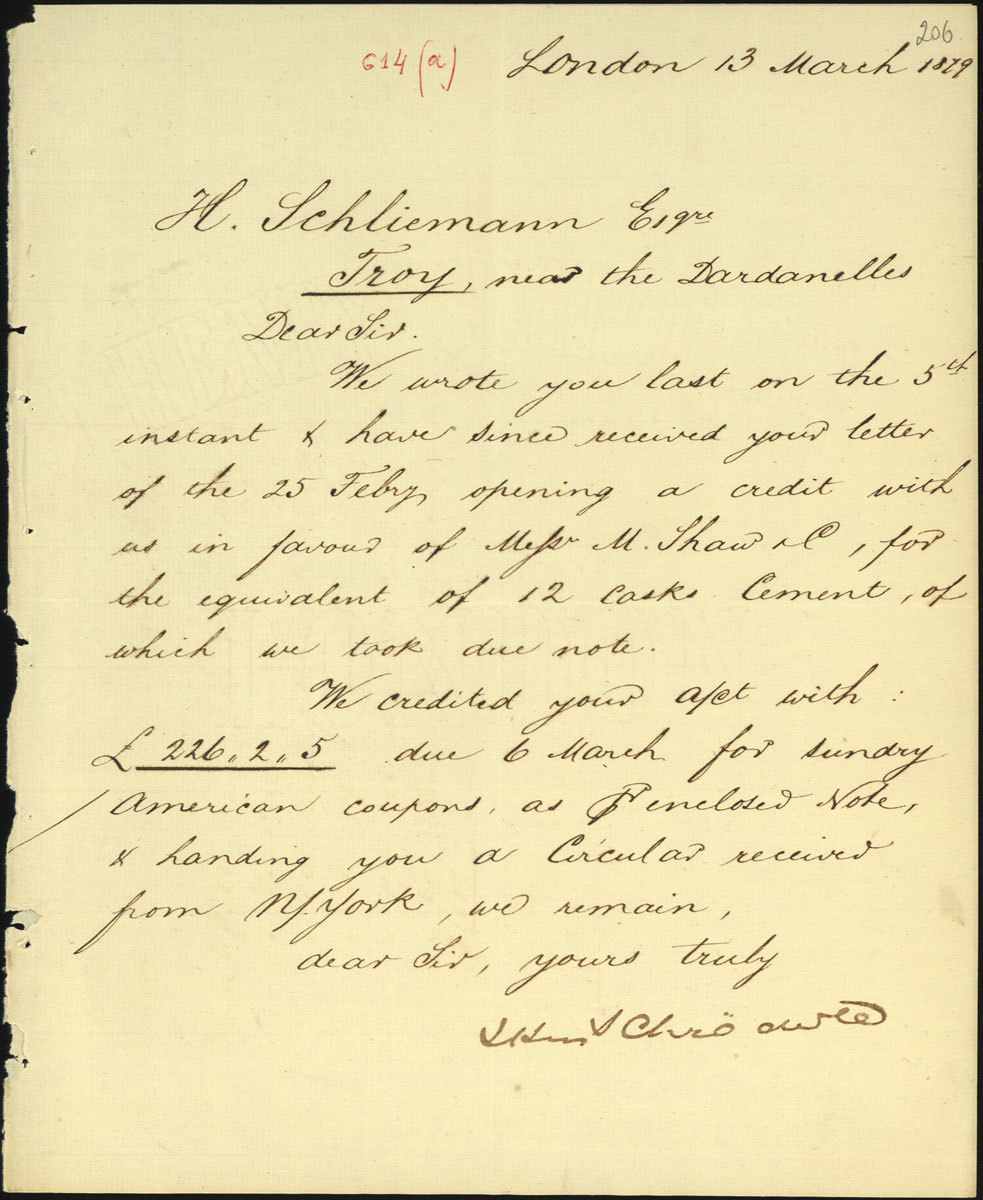 206
614 (a) London 13 March 1879
H. Schliemann Esqre
Troy, near the Dardanelles
Dear Sir.
We wrote you last on the 5th
instant & have since received your letter
of the 25 Febry, opening a credit with
us in favour of Messrs M. Shaw & C, for
the equivalent of 12 casks Cement, of
which we took due note.
We credited your a/ct with :
£ 226„2„5 due 6 March for sundry
American coupons, as P enclosed Note,
& handing you a Circular received
from N/York, we remain,
dear Sir, yours truly